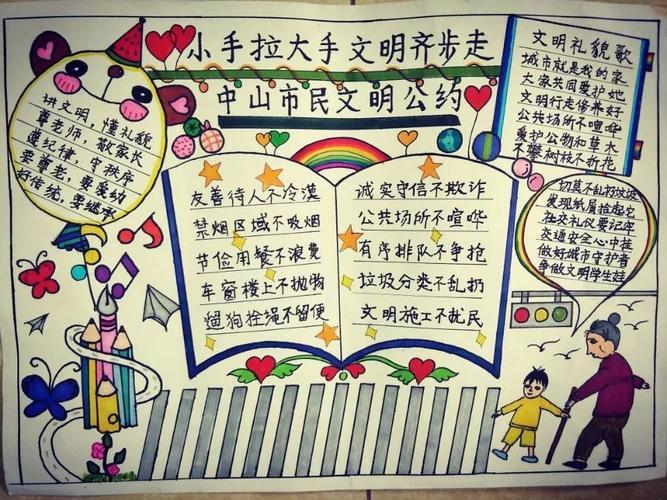 小手拉大手文明齐步走
中山市民文明公约
讲文明，懂礼貌
尊老师，敬家长
遵纪律，守秩序
要尊老，要爱幼
好传统，要继承
友善待人不冷漠
禁烟区域不吸烟
节俭用餐不浪费
车窗楼上不抛物
遛狗拴绳不留便
诚实守信不欺诈
公共场所不喧哗
有序排队不争抢
垃圾分类不乱扔
文明施工不扰民
文明礼貌歌
城市就是我的家
大家共同爱护她
文明行走修养好
公共场所不喧哗
爱护公物和草木
不攀树枝不折花
切莫乱扔垃圾
发现纸屑捡起它
社交礼仪要记牢
交通安全心中挂
做好城市守护者
争做文明学生娃